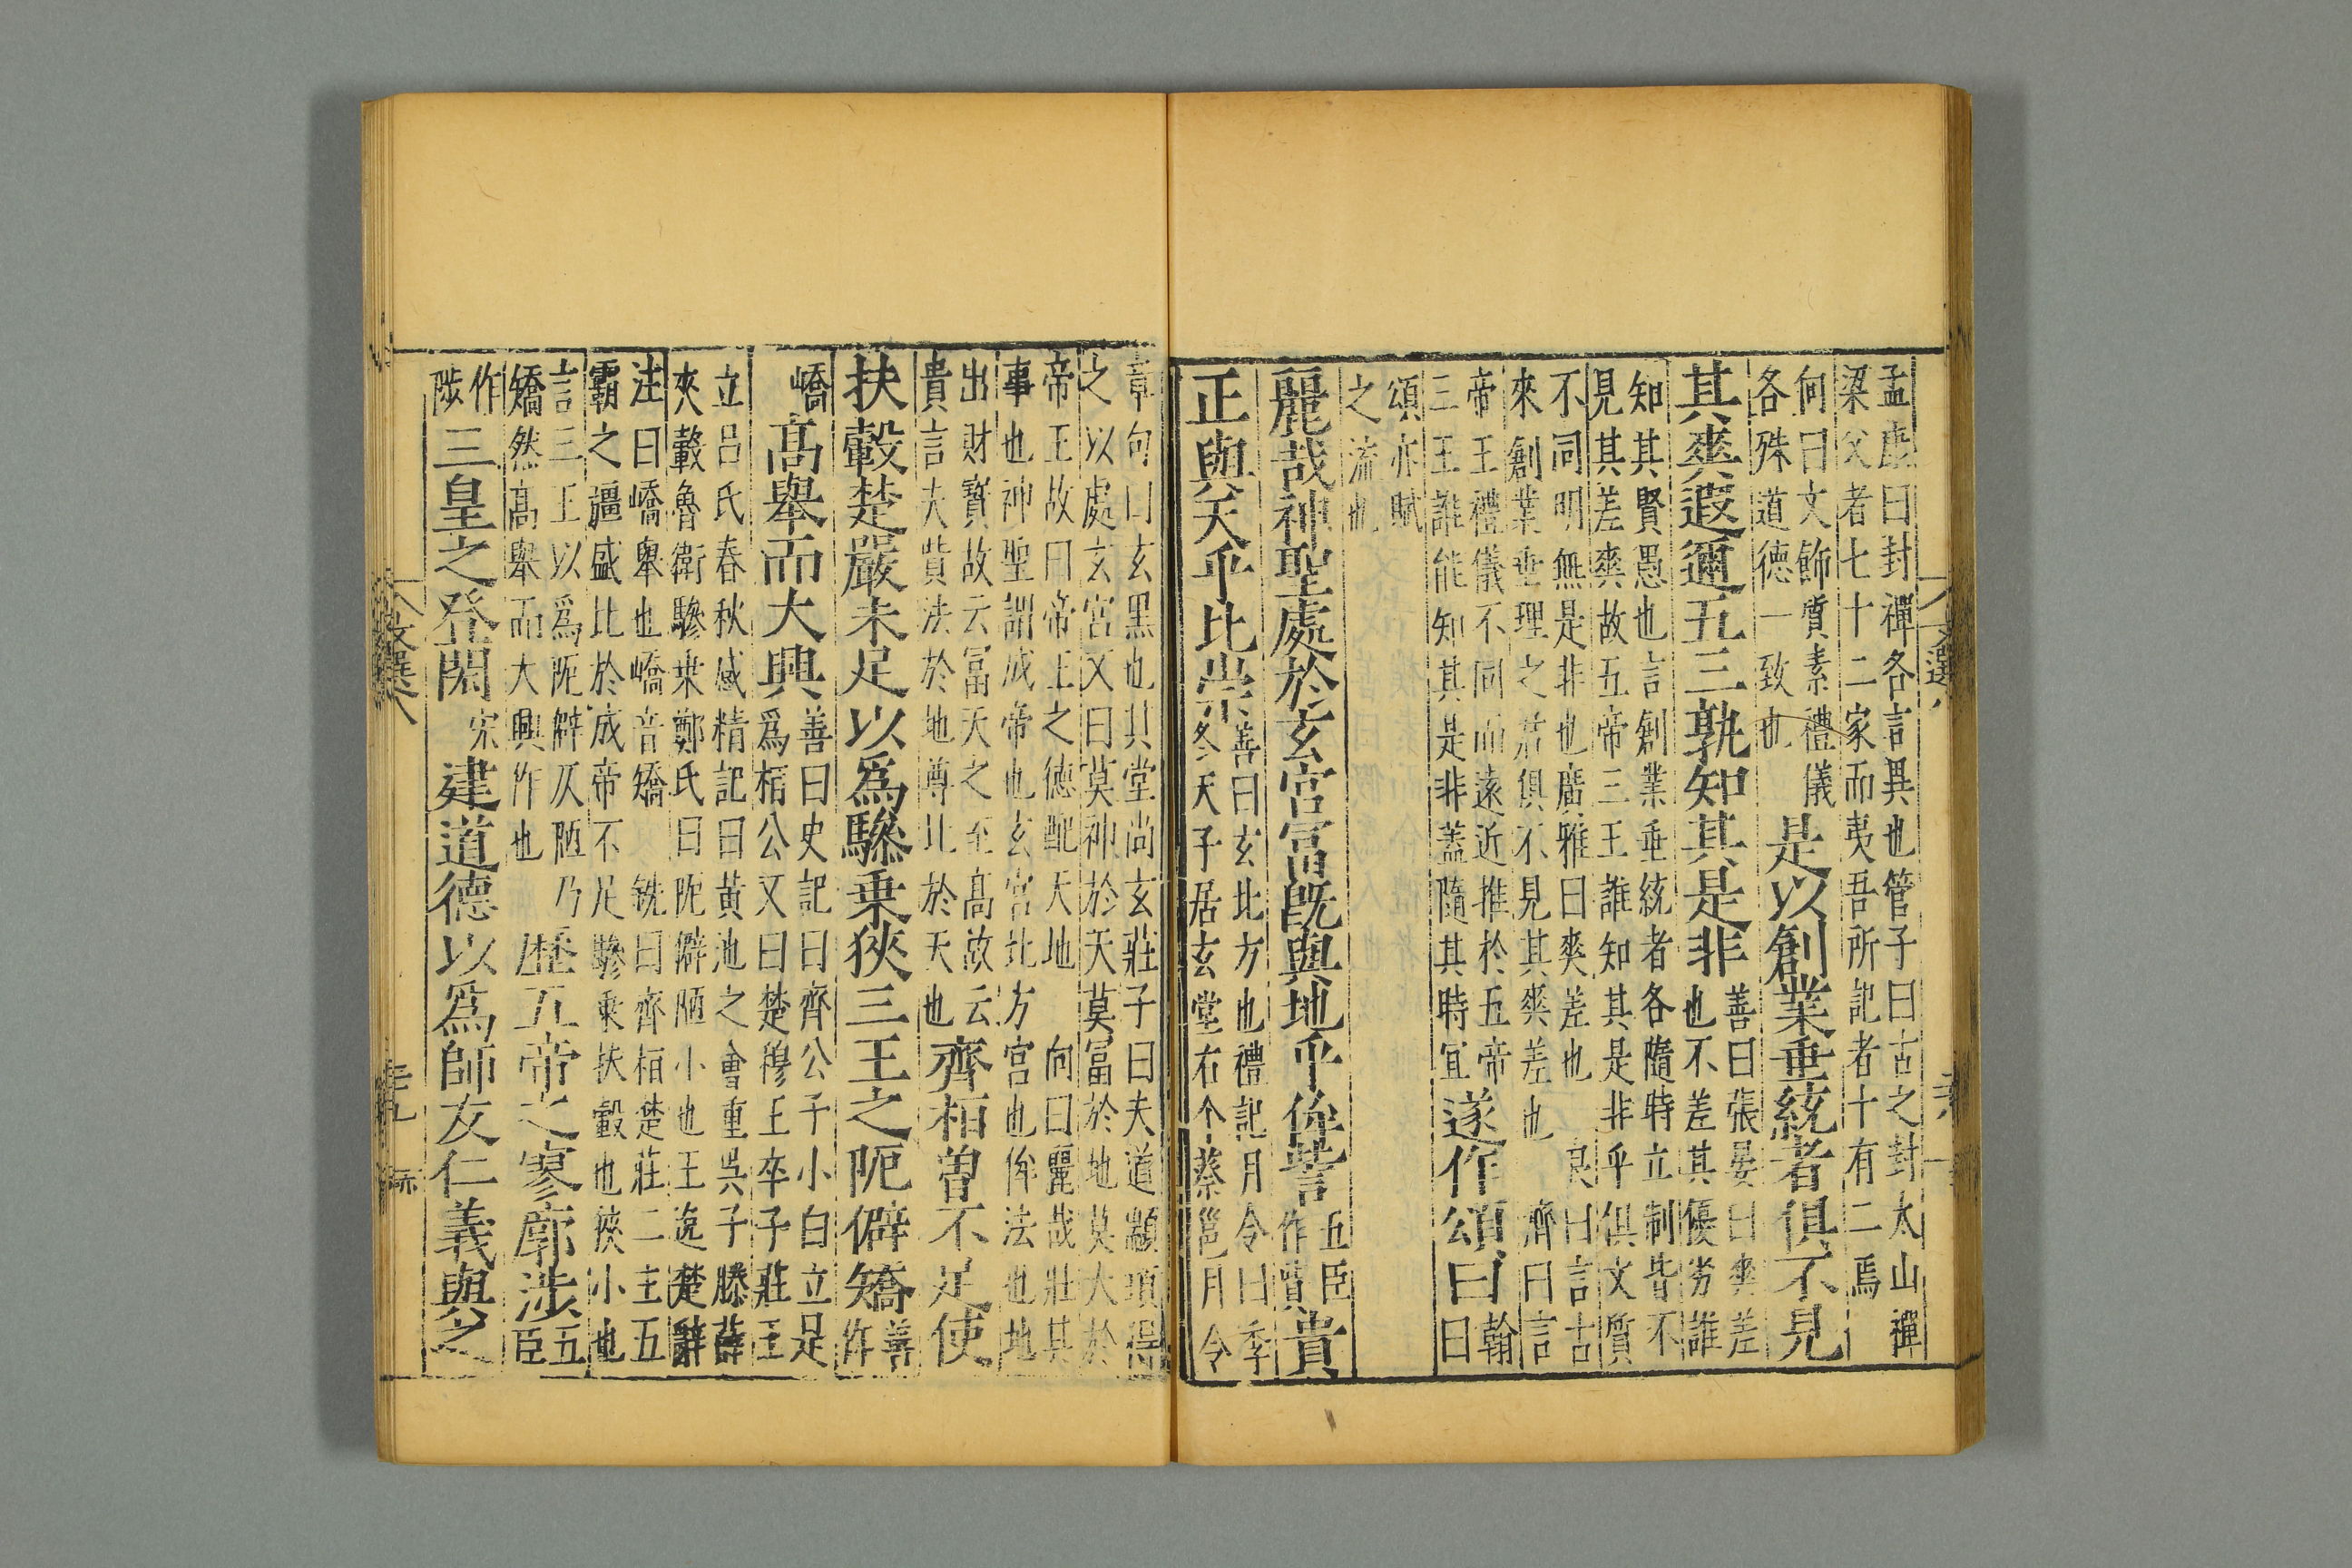 孟康曰封禪各言異也管子曰古之封太山禪
梁父者七十二家而夷吾所記者十有二焉
向曰文飾質素禮儀
各殊道德一致也
是以創業垂統者俱不見
其爽遐邇五三孰知其是非
善曰張晏曰爽差
也不差其優劣誰
知其賢愚也言創業垂統者各隨時立制皆不
見其差爽故五帝三王誰知其是非乎俱文質
不同明無是非也廣雅曰爽差也 良曰言古
來創業垂理之君俱不見其爽差也 濟曰言
帝王禮儀不同而遠近推於五帝
三王誰能知其是非蓋隨其時宜
遂作頌曰
翰
曰
頌亦賦
之流也
麗哉神聖處於玄宮富旣與地乎侔訾
五臣
作貲
貴
正與天乎比崇
善曰玄北方也禮記月令曰季
冬天子居玄堂右个蔡邕月令
章句曰玄黑也其堂尚玄莊子曰夫道顓頊得
之以處玄宮又曰莫神於天莫富於地莫大於
帝王故曰帝王之德配天地 向曰麗哉壯其
事也神聖謂成帝也玄宮北方宮也侔法也地
出財寶故云富天之至高故云
貴言夫貲法於地尊比於天也
齊桓曾不足使
扶轂楚嚴未足以爲驂乗狹三王之阨僻矯
善
作
嶠
髙舉而大興
善曰史記曰齊公子小白立是
爲桓公又曰楚穆王卒子莊王
立呂氏春秋感精記曰黃池之會重吳子滕薛
夾轂魯衛驂乘鄭氏曰阨僻陋小也王逸楚辭
注曰嶠舉也嶠音矯 銑曰齊桓楚莊二主五
霸之彊盛比於成帝不足驂乘扶轂也狹小也
言三王以爲阨僻仄陋乃
矯然髙舉而大興作也
歷五帝之寥廓涉
五
臣
作
陟
三皇之登閎
建道德以爲師友仁義與之
文選八